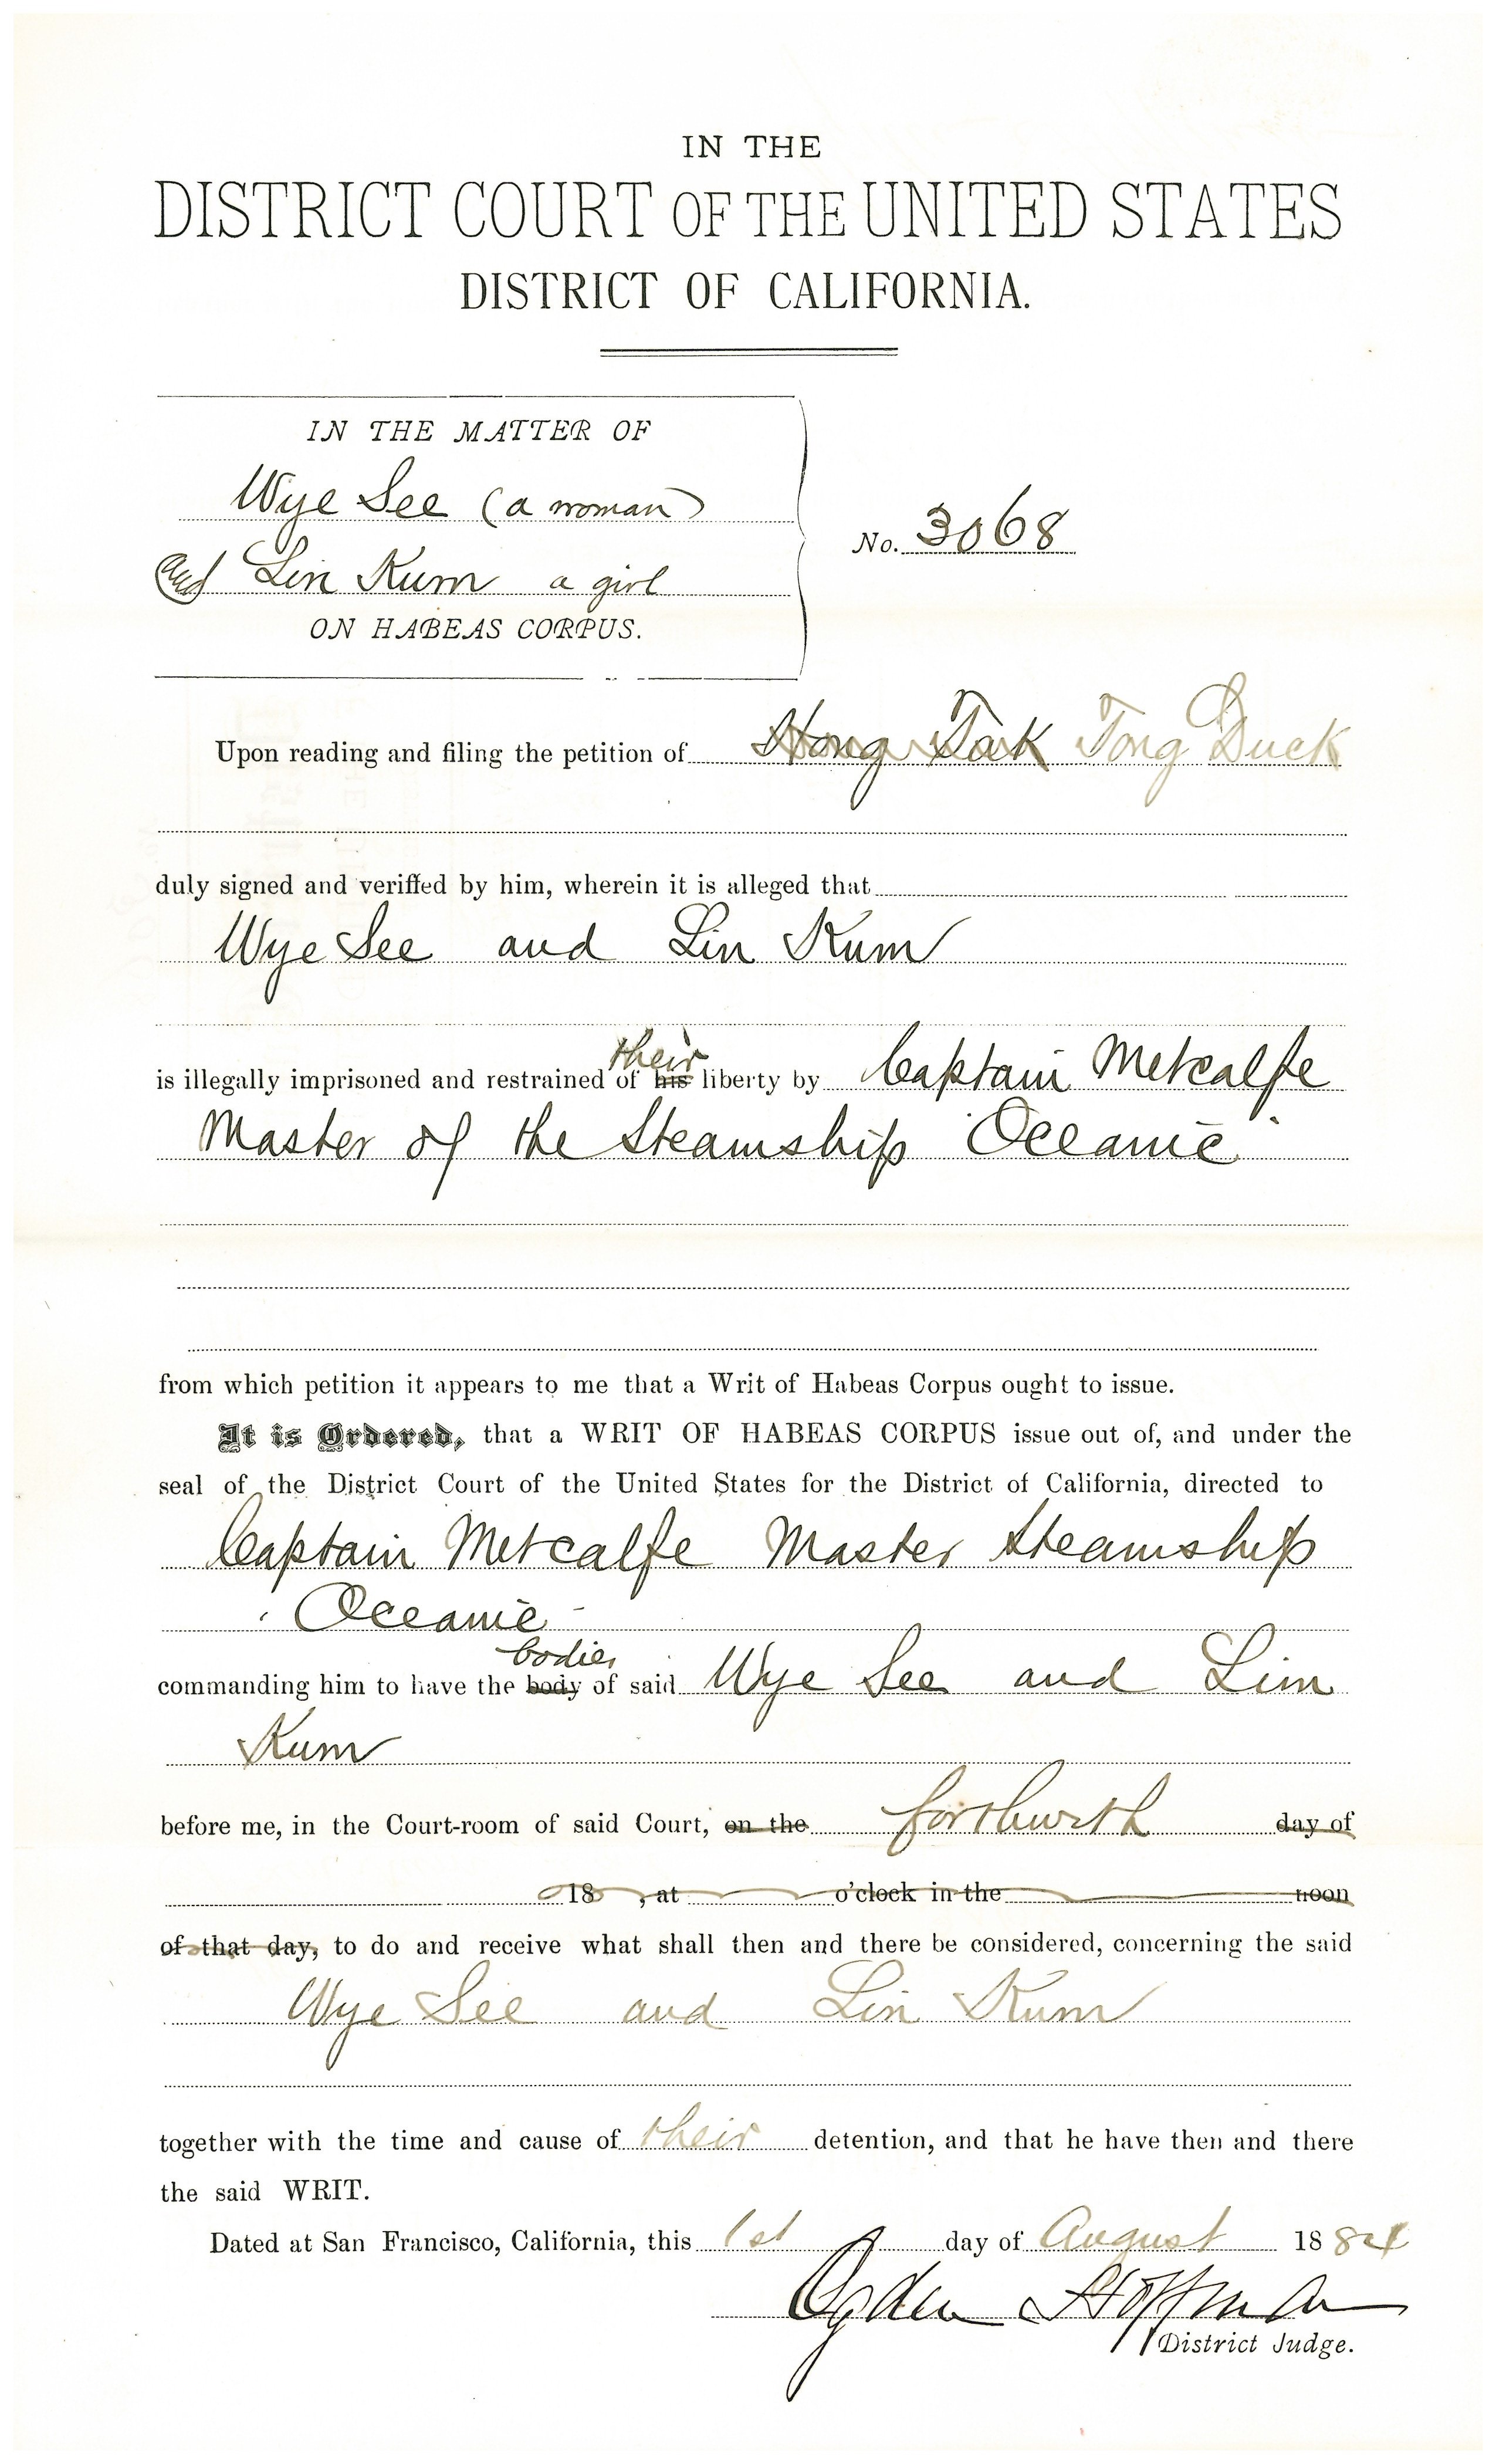 IN THE
DISTRICT COURT OF THE UNITED STATES
DISTRICT OF CALIFORNIA.
IN THE MATTER OF
Wye See (a woman)
and Lin Kum a girl
ON HABEAS CORPUS.
No. 3068
Upon reading and filing the petition of Hong Tak Tong Duck
duly signed and verified by him, wherein it is alleged that
Wye See and Lin Kum
their
is illegally imprisoned and restrained of his liberty by Captain Metcalfe
Master of the Steamship "Oceanic"
from which petition it appears to me that a Writ of Habeas Corpus ought to issue.
It is Ordered, that a WRIT OF HABEAS CORPUS issue out of, and under the
seal of the District Court of the United States for the District of California, directed to
Captain Metcalfe Master Steamship
"Oceanic"
bodies
commanding him to have the body of said Wye See and Lim
Kum
before me, in the Court-room of said Court, on the forthwith day of
18 , at o'clock in the noon
of that day, to do and receive what shall then and there be considered, concerning the said
Wye See and Lin Kum
together with the time and cause of their detention, and that he have then and there
the said WRIT.
Dated at San Francisco, California, this 1st day of August 1884
Ogden Hoffman
District Judge.